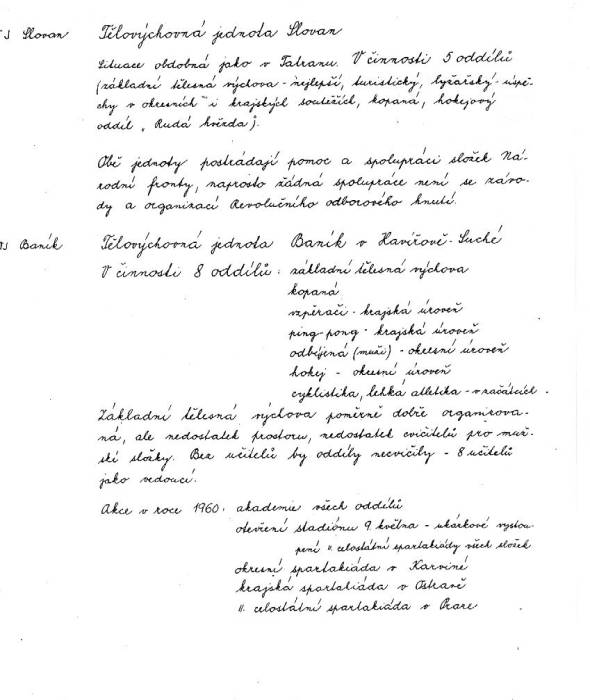 TJ Slovan Tělovýchovná jednota Slovan
Situace obdobná jako v Tatranu. V činnosti 5 oddílů
(základní tělesná výchova - nejlepší, turistický, lyžařský - úspě-
chy v okresních i krajských soutěžích, kopaná, hokejový
oddíl "Rudá hvězda").
Obě jednoty postrádají pomoc a spolupráci složek Ná-
rodní fronty, naprosto žádná spolupráce není se závo-
dy a organizací Revolučního odborového hnutí.
TJ Baník Tělovýchovná jednota Baník v Havířově-Suché
V činnosti 8 oddílů: základní tělesná výchova
kopaná
vzpěrači - krajská úroveň
ping-pong - krajská úroveň
odbíjená (muži) - okresní úroveň
hokej - okresní úroveň
cyklistika, lehká atletika - v začátcích.
Základní tělesná výchova poměrně dobře organizova-
ná, ale nedostatek prostoru, nedostatek cvičitelů pro muž-
ské složky. Bez učitelů by oddíly necvičily - 8 učitelů
jako vedoucí.
Akce v roce 1960: akademie všech oddílů
otevření stadiónu 9. května - ukázkové vystou-
pení II. celostátní spartakiády všech složek
okresní spartakiáda v Karviné
krajská spartakiáda v Ostravě
II. celostátní spartakiáda v Praze